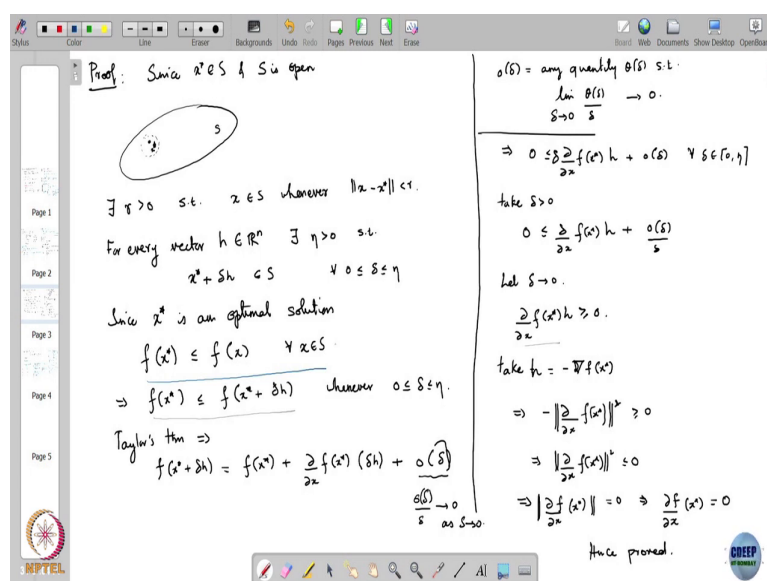 Stylus
Color
Line
Eraser
Backgrounds
Undo
Redo
Pages
Previous
Next
Erase
Board
Web
Documents
Show Desktop
OpenBoar
Page 1
Page 2
Page 3
Page 4
Page 5
Proof: Since x* ∈ S & S is open
S
∃ r>0 s.t. x ∈ S whenever ||x - x*|| < r.
For every vector h ∈ ℝⁿ ∃ η>0 s.t.
x* + δh ∈ S ∀ 0 ≤ δ ≤ η
Since x* is an optimal solution
f(x*) ≤ f(x) ∀ x ∈ S.
⇒ f(x*) ≤ f(x* + δh) whenever 0 ≤ δ ≤ η.
Taylor's thm ⇒
f(x* + δh) = f(x*) + ∂/∂x f(x*) (δh) + o(δ)
o(δ)/δ → 0 as δ→0.
o(δ) = any quantity θ(δ) s.t.
lim δ→0 θ(δ)/δ → 0.
⇒ 0 ≤ δ ∂/∂x f(x*) h + o(δ) ∀ δ ∈ [0, η]
take δ>0
0 ≤ ∂/∂x f(x*) h + o(δ)/δ
Let δ → 0.
∂/∂x f(x*) h ≥ 0.
take h = -∇f(x*)
⇒ -||∂/∂x f(x*)||² ≥ 0
⇒ ||∂/∂x f(x*)||² ≤ 0
⇒ ||∂f/∂x (x*)|| = 0 ⇒ ∂f/∂x (x*) = 0
Hence proved.
NPTEL
CDEEP
IIT BOMBAY